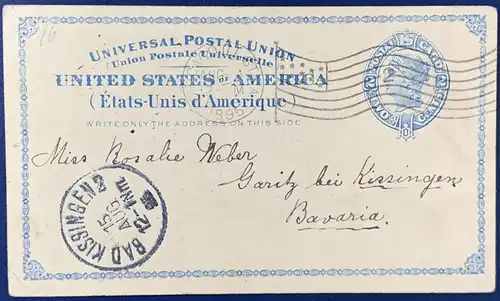 26
UNIVERSAL POSTAL UNION
Union Postale Universelle
UNITED STATES OF AMERICA
(États-Unis d'Amérique)
WRITE ONLY THE ADDRESS ON THIS SIDE
1895
POSTAL CARD
TWO CENTS
Miss Rosalie Weber
Garitz bei Kissingen
Bavaria.
BAD KISSINGEN
15
AUG.
12-